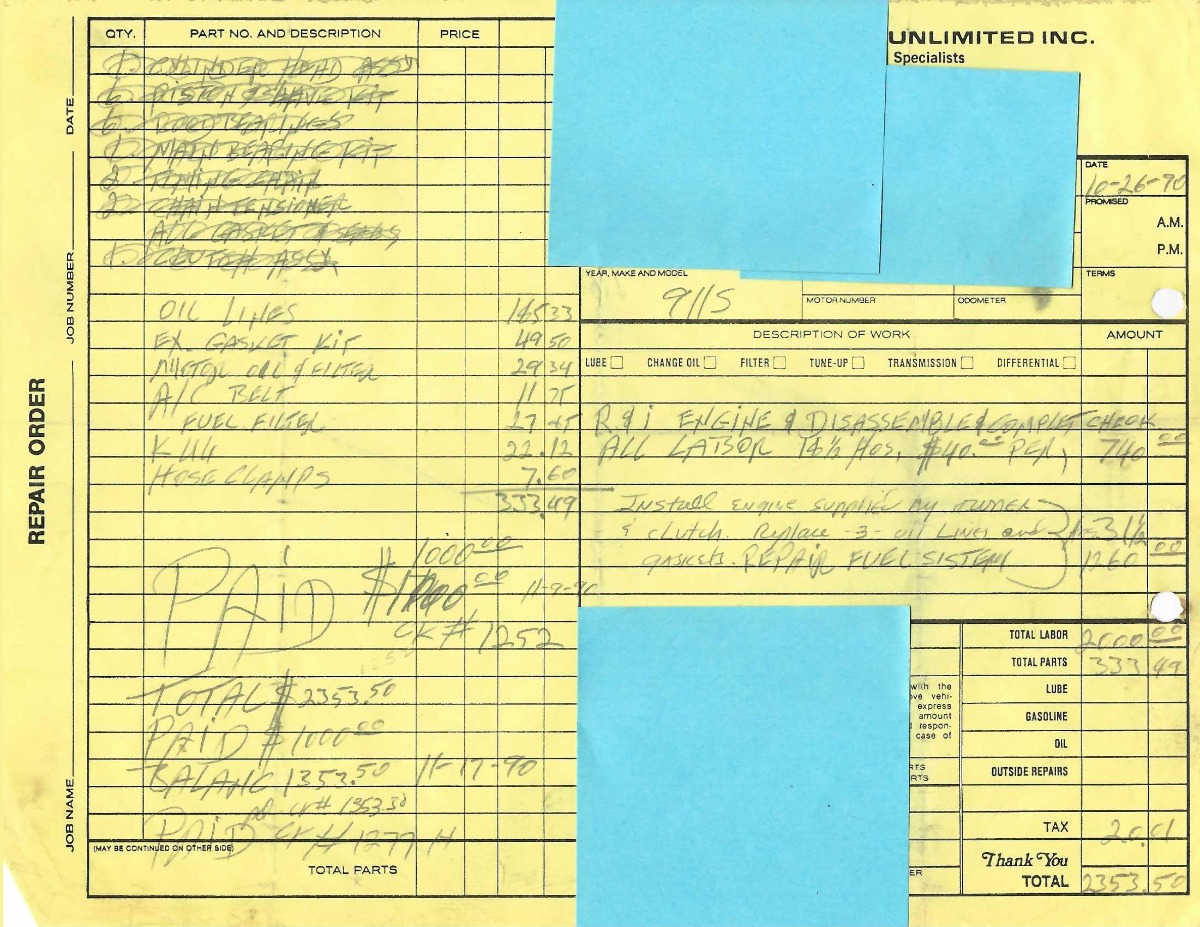 UNLIMITED INC.
Specialists
REPAIR ORDER
JOB NAME
JOB NUMBER
DATE
QTY. PART NO. AND DESCRIPTION PRICE
1 CYLINDER HEAD ASSY
6 PISTON & SLEEVE KIT
6 ROOD BEARINGS
1 MAIN BEARING KIT
2 TIMING CHAIN
2 CHAIN TENSIONER
GASKET & SEALS
1 CLUTCH ASSY
OIL LINES
EX. GASKET KIT 49 50
MOTOR OIL & FILTER 29 34
A/C BELT 11 75
FUEL FILTER
22.12
HOSE CLAMPS 7.60
333.49
PAID $1000.00
11-9-90
CK # 1252
TOTAL $ 2353.50
PAID $ 1000.00
BALANC 1353.50 11-17-90
pd CK# 1353.50
PAID CK # 1277
(MAY BE CONTINUED ON OTHER SIDE)
TOTAL PARTS
DATE
10-26-90
PROMISED
A.M.
P.M.
YEAR, MAKE AND MODEL
911S
MOTOR NUMBER
ODOMETER
TERMS
DESCRIPTION OF WORK AMOUNT
LUBE CHANGE OIL FILTER TUNE-UP TRANSMISSION DIFFERENTIAL
R & i ENGINE & DISASSEMBLE & COMPLET CHECK
ALL LABOR HOS, $40.00 PER, 740 00
INSTALL ENGINE SUPPLIED BY OWNER
& CLUTCH. Replace -3- OIL LINES and 31½
gaskets. REPAIR FUEL SISTEM 1260 00
with the
ve vehi-
express
amount
respon-
case of
RTS
RTS
ER
TOTAL LABOR 2000.00
TOTAL PARTS 333.49
LUBE
GASOLINE
OIL
OUTSIDE REPAIRS
TAX 20.01
Thank You
TOTAL 2353.50